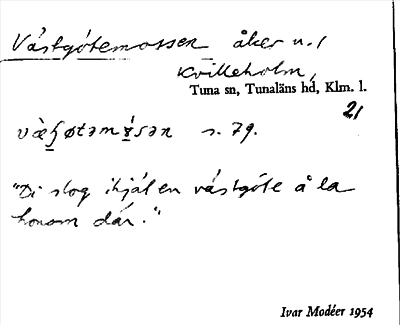 Västgötemossen åker n. I
Kvilleholm,
Tuna sn, Tunaläns hd, Klm. l.
21
s. 79.
"Di slog ihjäl en västgöte å la
honom där."
Ivar Modéer 1954